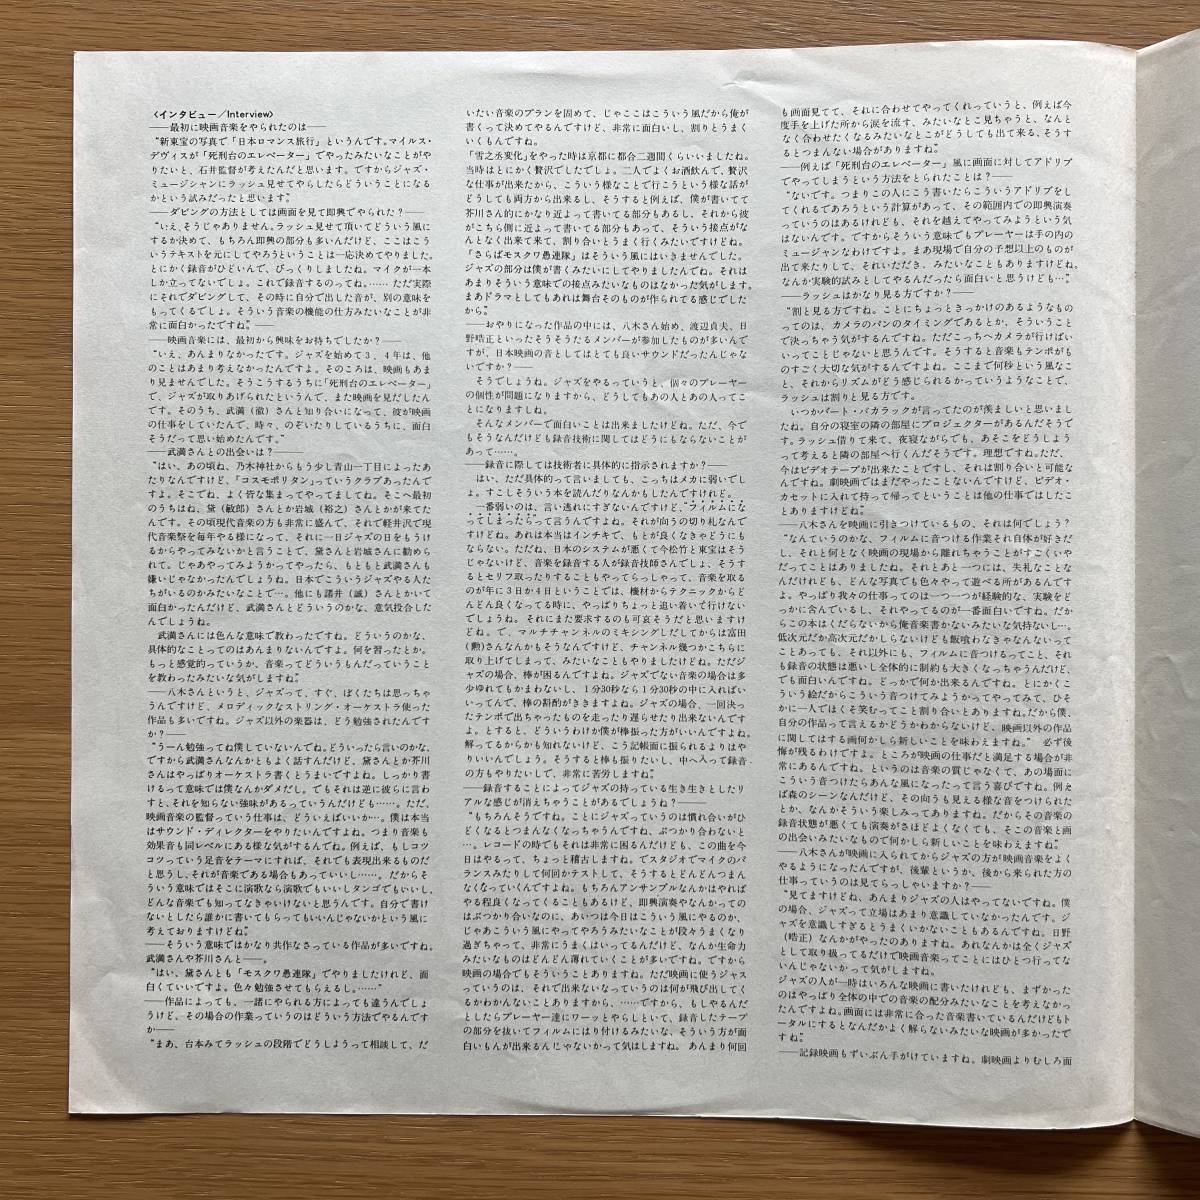 〈インタビュー／Interview〉
――最初に映画音楽をやられたのは――
"新東宝の写真で「日本ロマンス旅行」というんです。マイルス・
デヴィスが「死刑台のエレベーター」でやったみたいなことがや
りたいと、石井監督が考えたんだと思います。ですからジャズ・
ミュージシャンにラッシュ見せてやらしたらどういうことになる
かという試みだったと思います"
――ダビングの方法としては画面を見て即興でやられた？――
"いえ、そうじゃありません。ラッシュ見せて頂いてどういう風に
するか決めて、もちろん即興の部分も多いんだけど、ここはこう
いうテキストを元にしてやろうということは一応決めてやりました。
とにかく録音がひどいんで、びっくりしましたね。マイクが一本
しか立ってないでしょ。これで録音するのってね。…… ただ実際
にそれでダビングして、その時に自分で出した音が、別の意味を
もってくるでしょ。そういう音楽の機能の仕方みたいなことが非
常に面白かったですね"――
――映画音楽には、最初から興味をお持ちでしたか？――
"いえ、あんまりなかったです。ジャズを始めて３、４年は、他
のことはあまり考えなかったんですよ。そのころは、映画もあま
り見ませんでした。そうこうするうちに「死刑台のエレベーター」
で、ジャズが取りあげられたというんで、また映画を見だしたん
です。そのうち、武満（徹）さんと知り合いになって、彼が映画
の仕事をしていたんで、時々、のぞいたりしているうちに、面白
そうだって思い始めたんです。"
――武満さんとの出会いは？――
"はい、あの頃ね、乃木神社からもう少し青山一丁目によったあ
たりなんですけど、「コスモポリタン」っていうクラブあったんで
すよ。そこでね、よく皆な集まってやってましてね。そこへ最初
のうちはね、黛（敏郎）さんとか岩城（裕之）さんとかが来てた
んです。その頃現代音楽の方も非常に盛んで、それで軽井沢で現
代音楽祭を毎年やる様になって、それに一日ジャズの日をもうけ
るからやってみないかと言うことで、黛さんと岩城さんに勧めら
れて。じゃあやってみようかってやったら、もともと武満さんも
嫌いじゃなかったんでしょうね。日本でこういうジャズやる人た
ちがいるのかみたいなことで…。他にも諸井（誠）さんとかいて
面白かったんだけど、武満さんとどういうのかな、意気投合した
んでしょうね。
武満さんには色んな意味で教わったですね。どういうのかな、
具体的なことってのはあんまりないんですよ。何を習ったとか。
もっと感覚的っていうか、音楽ってどういうもんだっていうこと
を教わったみたいな気がしますね"
――八木さんというと、ジャズって、すぐ、ぼくたちは思っちゃ
うんですけど、メロディックなストリング・オーケストラ使った
作品も多いですね。ジャズ以外の楽器は、どう勉強されたんです
か？――
"うーん勉強ってね僕していないんでね。どういったら言いのかな、
ですから武満さんなんかともよく話すんだけど、黛さんとか芥川
さんはやっぱりオーケストラ書くとうまいですよね。しっかり書
けるって意味では僕なんかダメだし。でもそれは逆に彼らに言わ
すと、それを知らない強味があるっていうんだけども……。ただ、
映画音楽の監督っていう仕事は、どういえばいいか…。僕は本当
はサウンド・ディレクターをやりたいんですよね。つまり音楽も
効果音も同レベルにある様な気がするんでね。例えば、もしコツ
コツっていう足音をテーマにすれば、それでも表現出来るものだ
と思うし、それが音楽である場合もあっていいし…。だからそ
ういう意味ではそこに演歌なら演歌でもいいしタンゴでもいいし、
どんな音楽でも知ってなきゃいけないと思うんです。自分で書け
ないとしたら誰かに書いてもらってもいいんじゃないかという風に
考えておりますけどね"
――そういう意味ではかなり共作なさっている作品が多いですね。
武満さんや芥川さんと――。
"はい、黛さんとも「モスクワ愚連隊」でやりましたけれど、面
白くていいですよ。色々勉強させてもらえるし。……"
――作品によっても、一諸にやられる方によっても違うんでしょ
うけど、その場合の作業っていうのはどういう方法でやるんです
か――
"まあ、台本みてラッシュの段階でどうしようって相談して、だ
いたい音楽のプランを固めて、じゃここはこういう風だから俺が
書くって決めてやるんですけど、非常に面白いし、割りとうまく
いくもんですね。
「雪之丞変化」をやった時は京都に都合二週間くらいいましたね。
当時はとにかく贅沢でしたでしょ。二人でよくお酒飲んで、贅沢
な仕事が出来たから、こういう様なことで行こうという様な話が
どうしても両方から出来るし、そうすると例えば、僕が書いてて
芥川さん的にかなり近よって書いてる部分もあるし、それから彼
がこちら側に近よって書いてる部分もあって、そういう接点がな
んとなく出来て来て、割り合いとうまく行くみたいですけどね。
「さらばモスクワ愚連隊」はそういう風にはいきませんでした。
ジャズの部分は僕が書くみたいにしてやりましたんでね。それは
あまりそういう意味での接点みたいなものはなかった気がします。
まあドラマとしてもあれは舞台そのものが作られてる感じでした
から"
――おやりになった作品の中には、八木さん始め、渡辺貞夫、日
野皓正といったそうそうたるメンバーが参加したものが多いんで
すが、日本映画の音としてはとても良いサウンドだったんじゃな
いですか？――
そうでしょうね。ジャズをやるっていうと、個々のプレーヤー
の個性が問題になりますから、どうしてもあの人とあの人ってこ
とになりますしね。
そんなメンバーで面白いことは出来ましたけどね。ただ、今で
もそうなんだけども録音技術に関してはどうにもならないことが
あって……。
――録音に際しては技術者に具体的に指示されますか？――
はい、ただ具体的って言いましても、こっちはメカに弱いでし
ょ。すこしそういう本を読んだりなんかもしたんですけれど。
一番弱いのは、言い逃れにすぎないんですけど、"フィルムにな
ってしまったら"って言うんですよね。それが向うの切り札なんで
すけどね。あれは本当はインチキで、もとが良くなきゃどうにも
ならない。ただね、日本のシステムが悪くて今松竹と東宝はそう
じゃないけど、音楽を録音する人が録音技師さんでしょ、そうす
るとセリフ取ったりすることもやってらっしゃって、音楽を取る
のが年に３日か４日ということでは、機材からテクニックからど
んどん良くなってる時に、やっぱりちょっと追い着いて行けない
でしょうね。それにまた要求するのも可哀そうだと思いますけ
どね。で、マルチチャンネルのミキシングしだしてからは富田
（勲）さんなんかもそうなんですけど、チャンネル幾つかこちらに
取り上げてしまって、みたいなこともやりましたけどね。ただジ
ャズの場合、棒が困るんですよね。ジャズでない音楽の場合は多
少ゆれてもかまわないし、１分30秒なら１分30秒の中に入ればい
いってんで、棒の斟酌がききますよね。ジャズの場合、一回決っ
たテンポで出ちゃったものを走ったり遅らせたり出来ないんです
よ。とすると、どういうわけか僕が棒振った方がいいんですよね。
解ってるからかも知れないけど、こう記帳面に振られるよりはや
りいいんでしょう。そうすると棒も振りたいし、中へ入って録音
の方もやりたいしで、非常に苦労しますね"
――録音することによってジャズの持っている生き生きとしたリ
アルな感じが消えちゃうことがあるでしょうね？――
"もちろんそうですね。ことにジャズっていうのは慣れ合いがひ
どくなるとつまんなくなっちゃうんですね、ぶつかり合わないと
…。レコードの時でもそれは非常に困るんだけども、この曲を今
日はやるって、ちょっと稽古しますね。でスタジオでマイクのバ
ランスみたりして何回かテストして、そうするとどんどんつまん
なくなっていくんですよね。もちろんアンサンブルなんかはやれば
やる程良くなってくることもあるけど、即興演奏やなんかっての
はぶつかり合いなのに、あいつは今日はこういう風にやるのか、
じゃあこういう風にやってやろうみたいなことが段々うまくなり
過ぎちゃって、非常にうまくはいってるんだけど、なんか生命力
みたいなものはどんどん薄れていくことが多いですね。ですから
映画の場合でもそういうことありますね。ただ映画に使うジャズ
っていうのは、それで出来ないなっていうのは何が飛び出してく
るかわかんないことありますから、……ですから、もしやるんだ
としたらプレーヤー達にワーッとやらしといて、録音したテープ
の部分を抜いてフィルムにはり付けるみたいな、そういう方が面
白いもんが出来るんじゃないかって気はしますね。あんまり何回
も画面見てて、それに合わせてやってくれっていうと、例えば今
度手を上げた所から涙を流す、みたいなとこ見ちゃうと、なんと
なく合わせたくなるみたいなとこがどうしても出て来る、そうす
るとつまんない場合がありますね"
――例えば「死刑台のエレベーター」風に画面に対してアドリブ
でやってしまうという方法をとられたことは？――
"ないです。つまりこの人にこう書いたらこういうアドリブをし
てくれるであろうという計算があって、その範囲内での即興演奏
っていうのはあるけれども、それを越えてやってみようという気
はないんです。ですからそういう意味でもプレーヤーは手の内の
ミュージャンなわけですよ。まあ現場で自分の予想以上のものが
出て来たりして、それいただき、みたいなこともありますけどね、
なんか実験的試みとしてやるんだったら面白いと思うけども…"
――ラッシュはかなり見る方ですか？――
"割と見る方ですね。ことにちょっときっかけのあるようなもの
ってのは、カメラのパンのタイミングであるとか、そういうこと
で決っちゃう気がするんですね。ただこっちへカメラが行けばい
いってことじゃないと思うんです。そうすると音楽もテンポがも
のすごく大切な気がするんですよね。ここまで何秒という風なこ
と、それからリズムがどう感じられるかっていうようなことで、
ラッシュは割りと見る方です。
いつかバート・バカラックが言ってたのが羨ましいと思いまし
たね。自分の寝室の隣の部屋にプロジェクターがあるんだそうで
す。ラッシュ借りて来て、夜寝ながらでも、あそこをどうしよう
って考えると隣の部屋へ行くんだそうです。理想ですね。ただ、
今はビデオテープが出来たことですし、それは割り合いと可能な
んですね。劇映画ではまだやったことないんですけど、ビデオ・
カセットに入れて持って帰ってということは他の仕事ではしたこ
とありますけどね"
――八木さんを映画に引きつけているもの、それは何でしょう？
"なんていうのかな、フィルムに音つける作業それ自体が好きだ
し、それと何となく映画の現場から離れちゃうことがすごくいや
だってことはありましたね。それとあと一つには、失礼なことな
んだけれども、どんな写真でも色々やって遊べる所があるんです
よ。やっぱり我々の仕事ってのは一つ一つが経験的な、実験をど
っかに含んでいるし、それやってるのが一番面白いですね。だか
らこの本はくだらないから俺音楽書かないみたいな気持ないし…。
低次元だか高次元だかしらないけども飯喰わなきゃなんないって
ことあっても、それ以外にも、フィルムに音つけるってこと、それ
も録音の状態は悪いし全体的に制約も大きくなっちゃうんだけど、
でも面白いんですね。どっかで何か出来るんですね。とにかくこ
ういう絵だからこういう音つけてみようかってやってみて、ひそ
かに一人でほくそ笑むってこと割り合いとありますね。だから僕、
自分の作品って言えるかどうかわからないけど、映画以外の作品
に関してはする画何かしら新しいことを味わえますね。" 必ず後
悔が残るわけですよ。ところが映画の仕事だと満足する場合が非
常にあるんですね。というのは音楽の質じゃなくて、あの場面に
こういう音つけたらあんな風になったって言う喜びですね。例え
ば森のシーンなんだけど、その向うも見える様な音をつけられた
とか、なんかそういう楽しみってありますね。だからその音楽の
録音状態が悪くても演奏がさほどよくなくても、そこの音楽と画
の出会いみたいなもので何かしら新しいことを味わえますね"
――八木さんが映画に入られてからジャズの方が映画音楽をよく
やるようになったんですが、後輩というか、後から来られた方の
仕事っていうのは見てらっしゃいますか？――
"見てますけどね、あんまりジャズの人はやってないですね。僕
の場合、ジャズって立場はあまり意識していなかったんです。ジ
ャズを意識しすぎるとうまくいかないこともあるんですね。日野
（皓正）なんかがやったのありますね。あれなんかは全くジャズ
として取り扱ってるだけで映画音楽ってことにはひとつ行ってな
いんじゃないかって気がしますね。
ジャズの人が一時はいろんな映画に書いたけれども、まずかった
のはやっぱり全体の中での音楽の配分みたいなことを考えなかっ
たんですよね。画面には非常に合った音楽書いているんだけどもト
ータルにするとなんだかよく解らないみたいな映画が多かったで
すね"
――記録映画もずいぶん手がけていますね。劇映画よりむしろ面